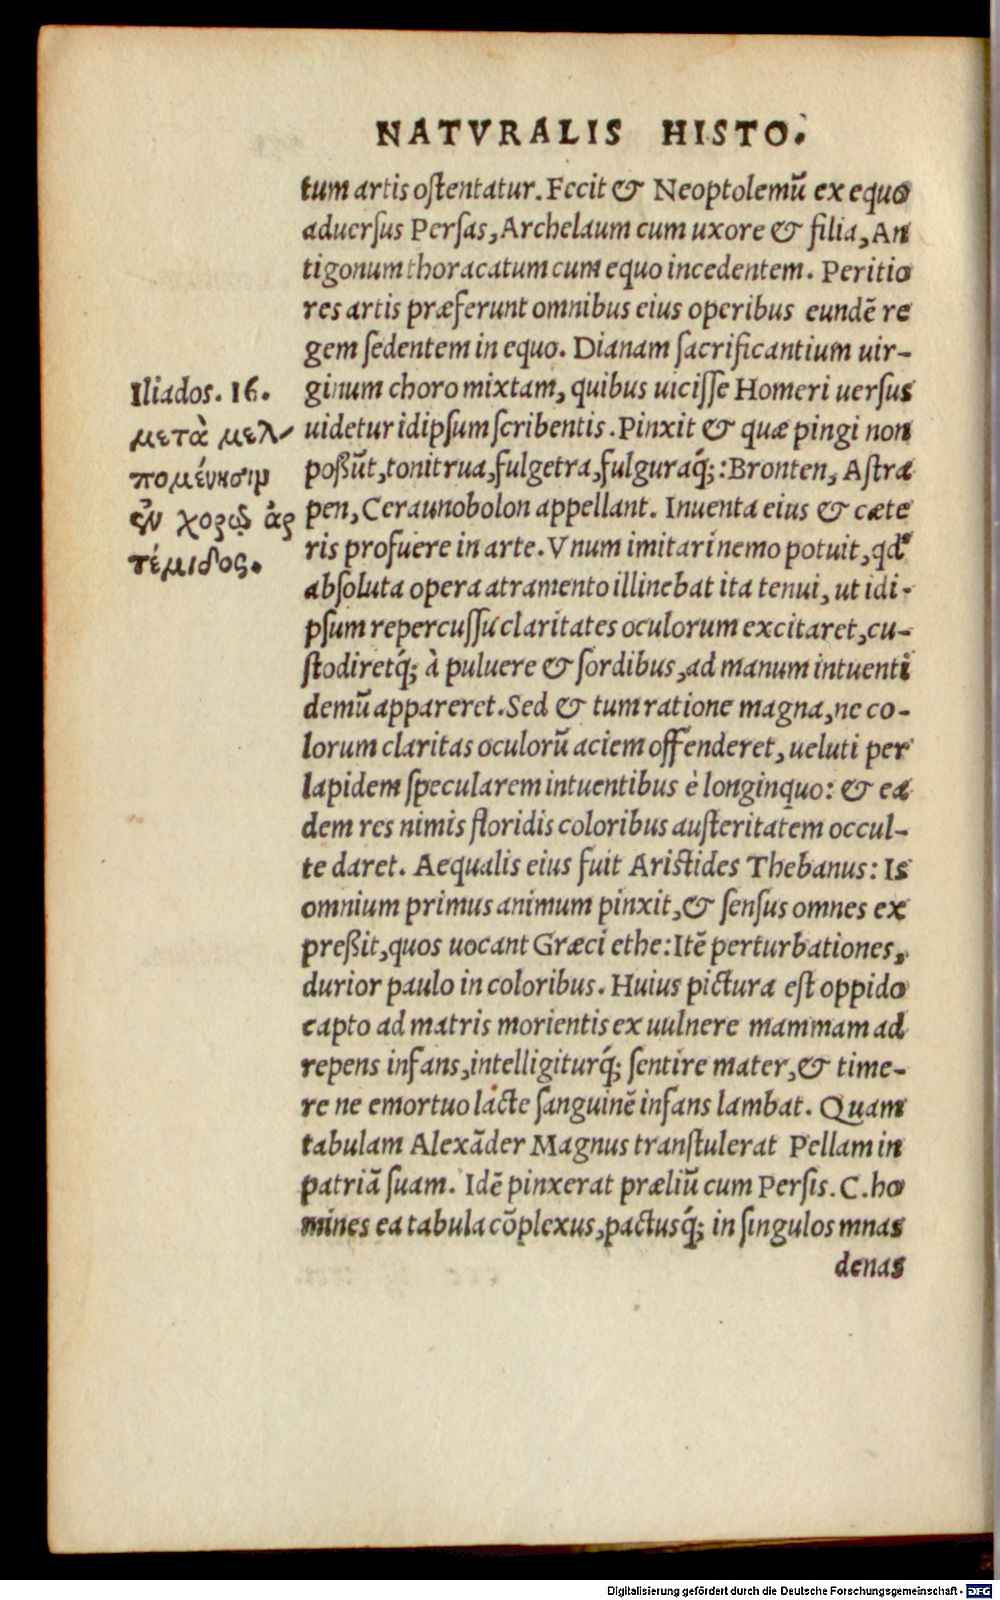 NATVRALIS HISTO.
tum artis oſtentatur. Fecit & Neoptolemū ex equo
aduerſus Perſas, Archelaum cum uxore & filia, An
tigonum thoracatum cum equo incedentem. Peritio
res artis præferunt omnibus eius operibus eundē re
gem ſedentem in equo. Dianam ſacrificantium uir-
ginum choro mixtam, quibus uiciſſe Homeri uerſus
uidetur idipſum ſcribentis. Pinxit & quæ pingi non
poßūt, tonitrua, fulgetra, fulguraq́;: Bronten, Aſtra
pen, Ceraunobolon appellant. Inuenta eius & cæte
ris profuere in arte. Vnum imitari nemo potuit, qđ
abſoluta opera atramento illinebat ita tenui, ut idi-
pſum repercuſſu claritates oculorum excitaret, cu-
ſtodiretq́; à puluere & ſordibus, ad manum intuenti
demū appareret. Sed & tum ratione magna, ne co-
lorum claritas oculorū aciem offenderet, ueluti per
lapidem ſpecularem intuentibus è longinquo: & ea
dem res nimis floridis coloribus auſteritatem occul-
te daret. Aequalis eius fuit Ariſtides Thebanus: Is
omnium primus animum pinxit, & ſenſus omnes ex
preßit, quos uocant Græci ethe: Itē perturbationes,
durior paulo in coloribus. Huius pictura eſt oppido
capto ad matris morientis ex uulnere mammam ad
repens infans, intelligiturq́; ſentire mater, & time-
re ne emortuo lacte ſanguinē infans lambat. Quam
tabulam Alexāder Magnus tranſtulerat Pellam in
patriā ſuam. Idē pinxerat præliū cum Perſis. C. ho
mines ea tabula cōplexus, pactusq́; in ſingulos mnas
denas
Iliados. 16.
μετὰ μελ-
πομένῃσιν
ἐν χορῷ ἀρ
τέμιδος.
Digitalisierung gefördert durch die Deutsche Forschungsgemeinschaft - DFG